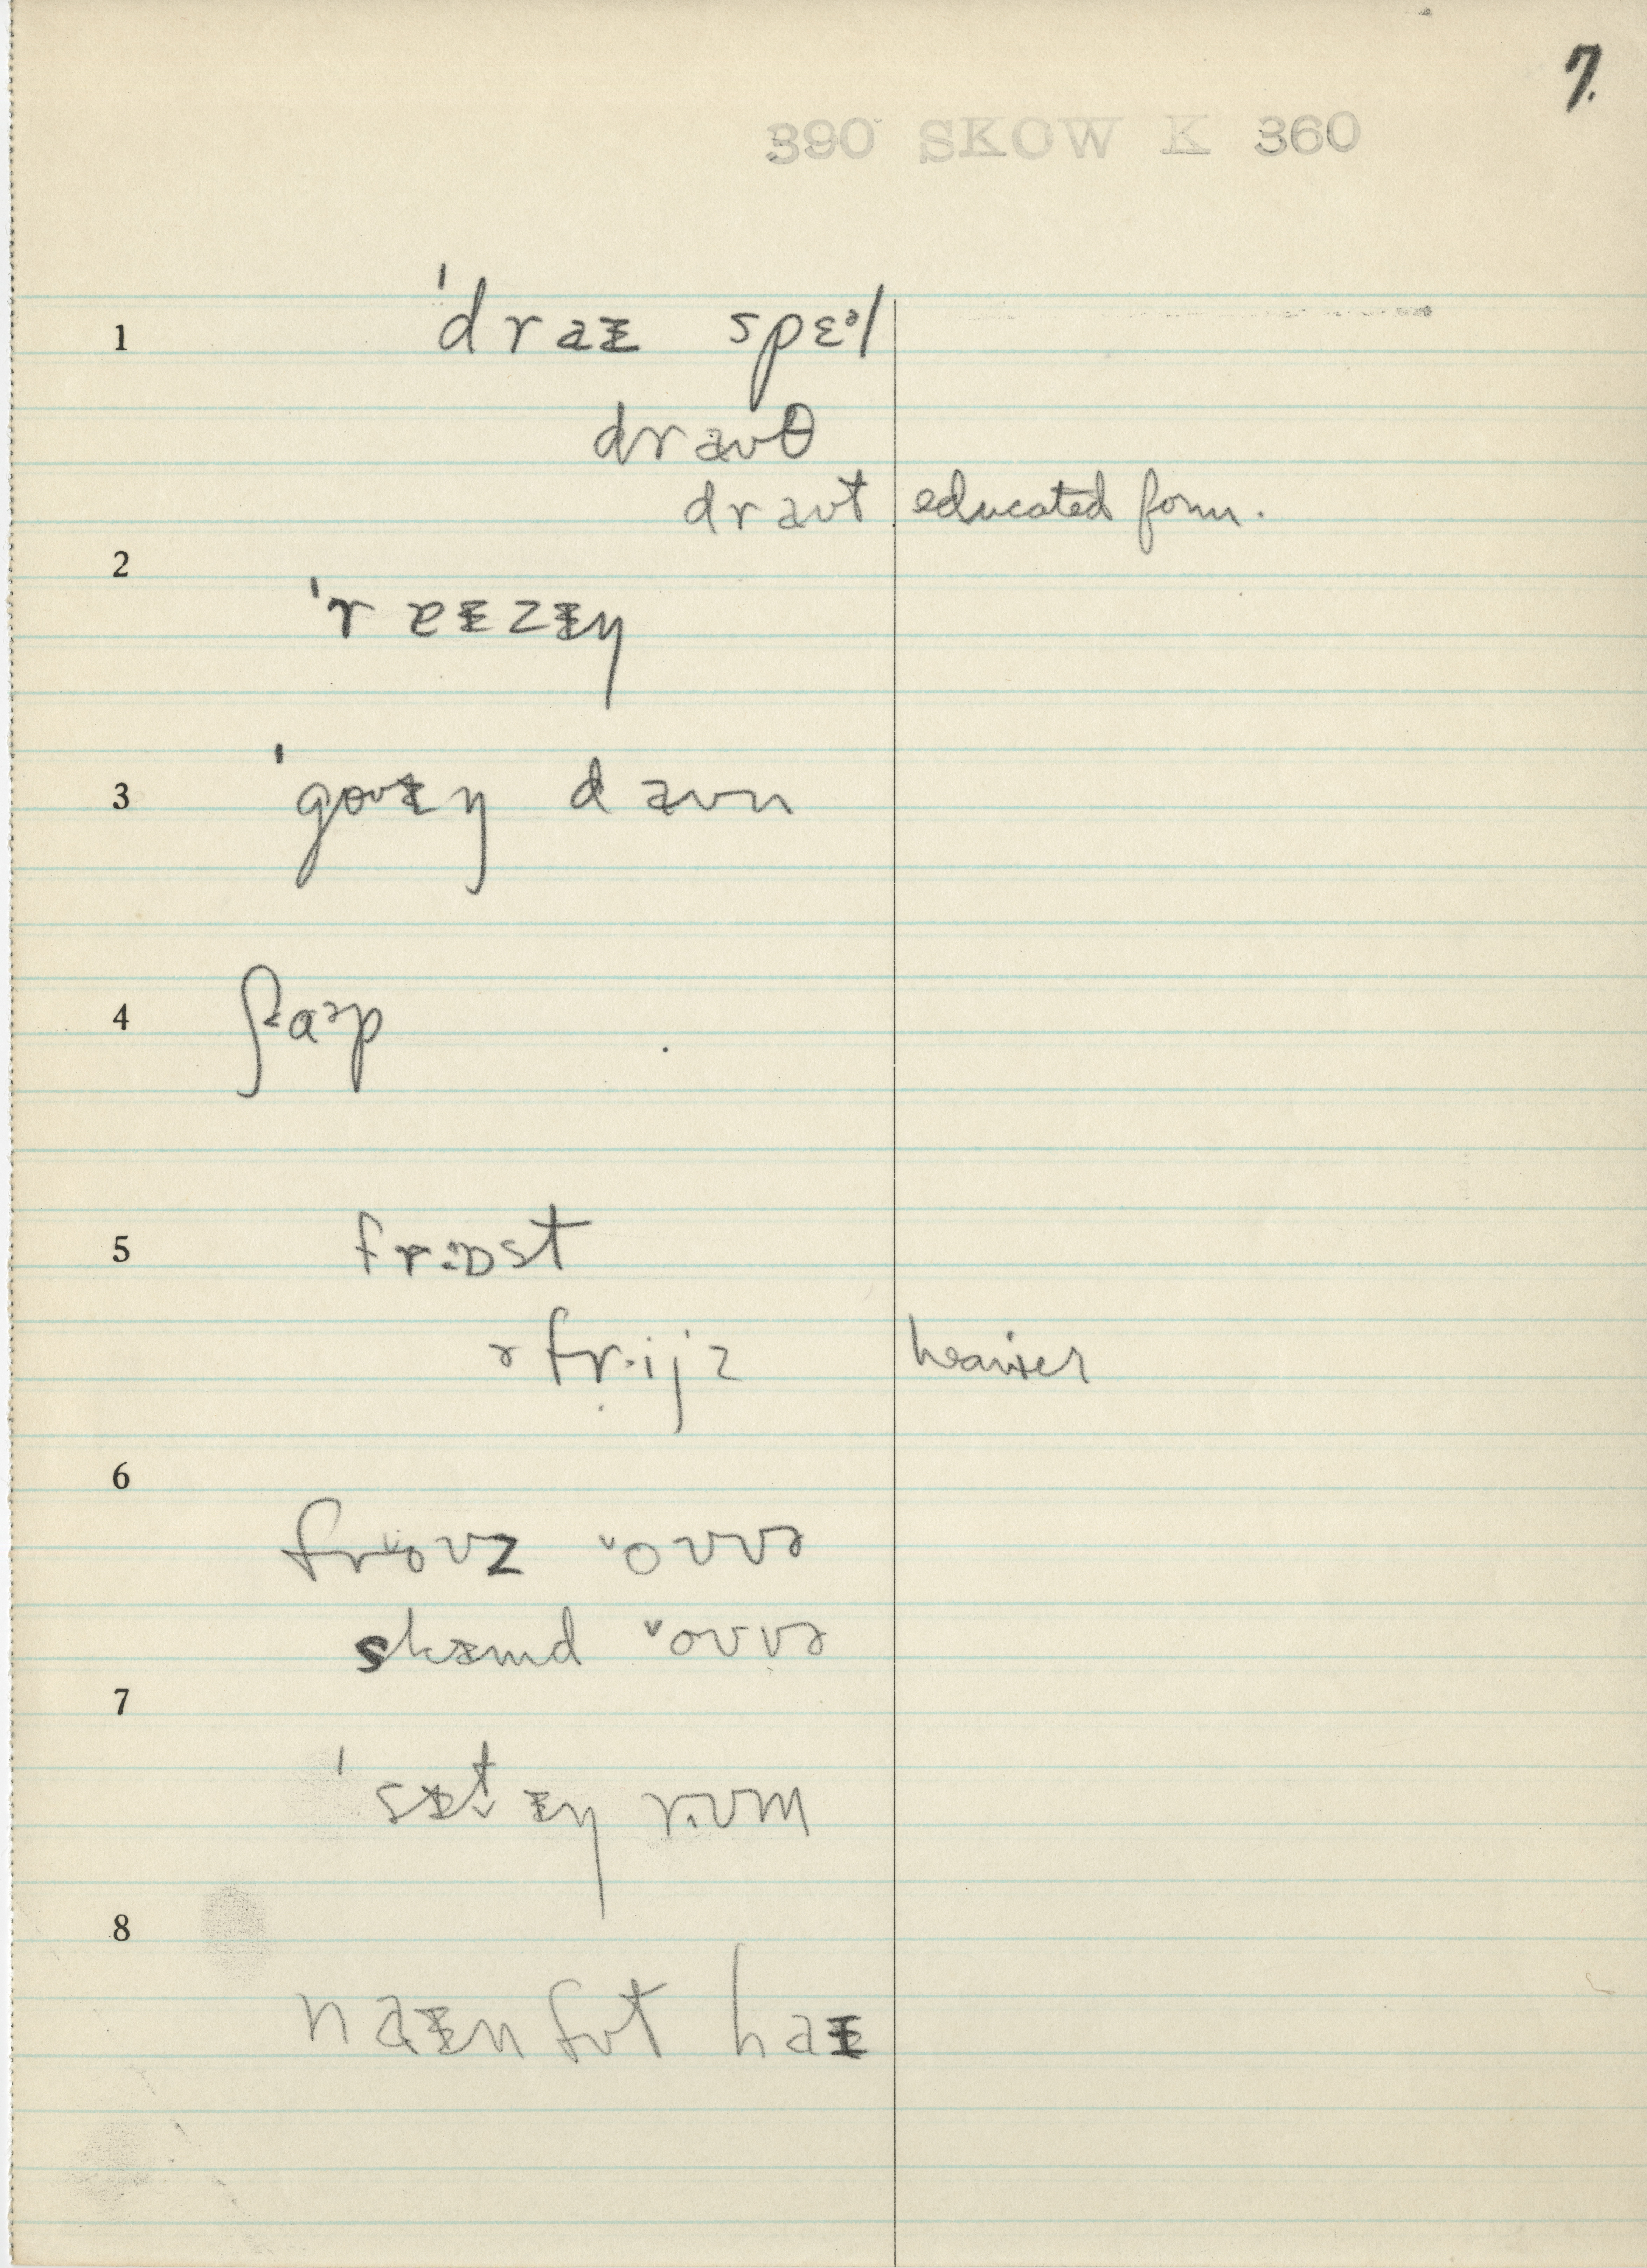 7.
390 SKOW K 360
1
ˈdraɪ spɛᵊl
draʊθ
draʊt educated form.
2
ˈreɪzɪŋ
3
ˈgoʊɪŋ daʊn
4
ʃaɚp
5
frɒst
friːjz heavier
6
froʊz ˇoʊvɚ
skɪmd ˇoʊvɚ
7
ˈsɪt̬ɪŋ rʊm
8
naɪn fʊt haɪ